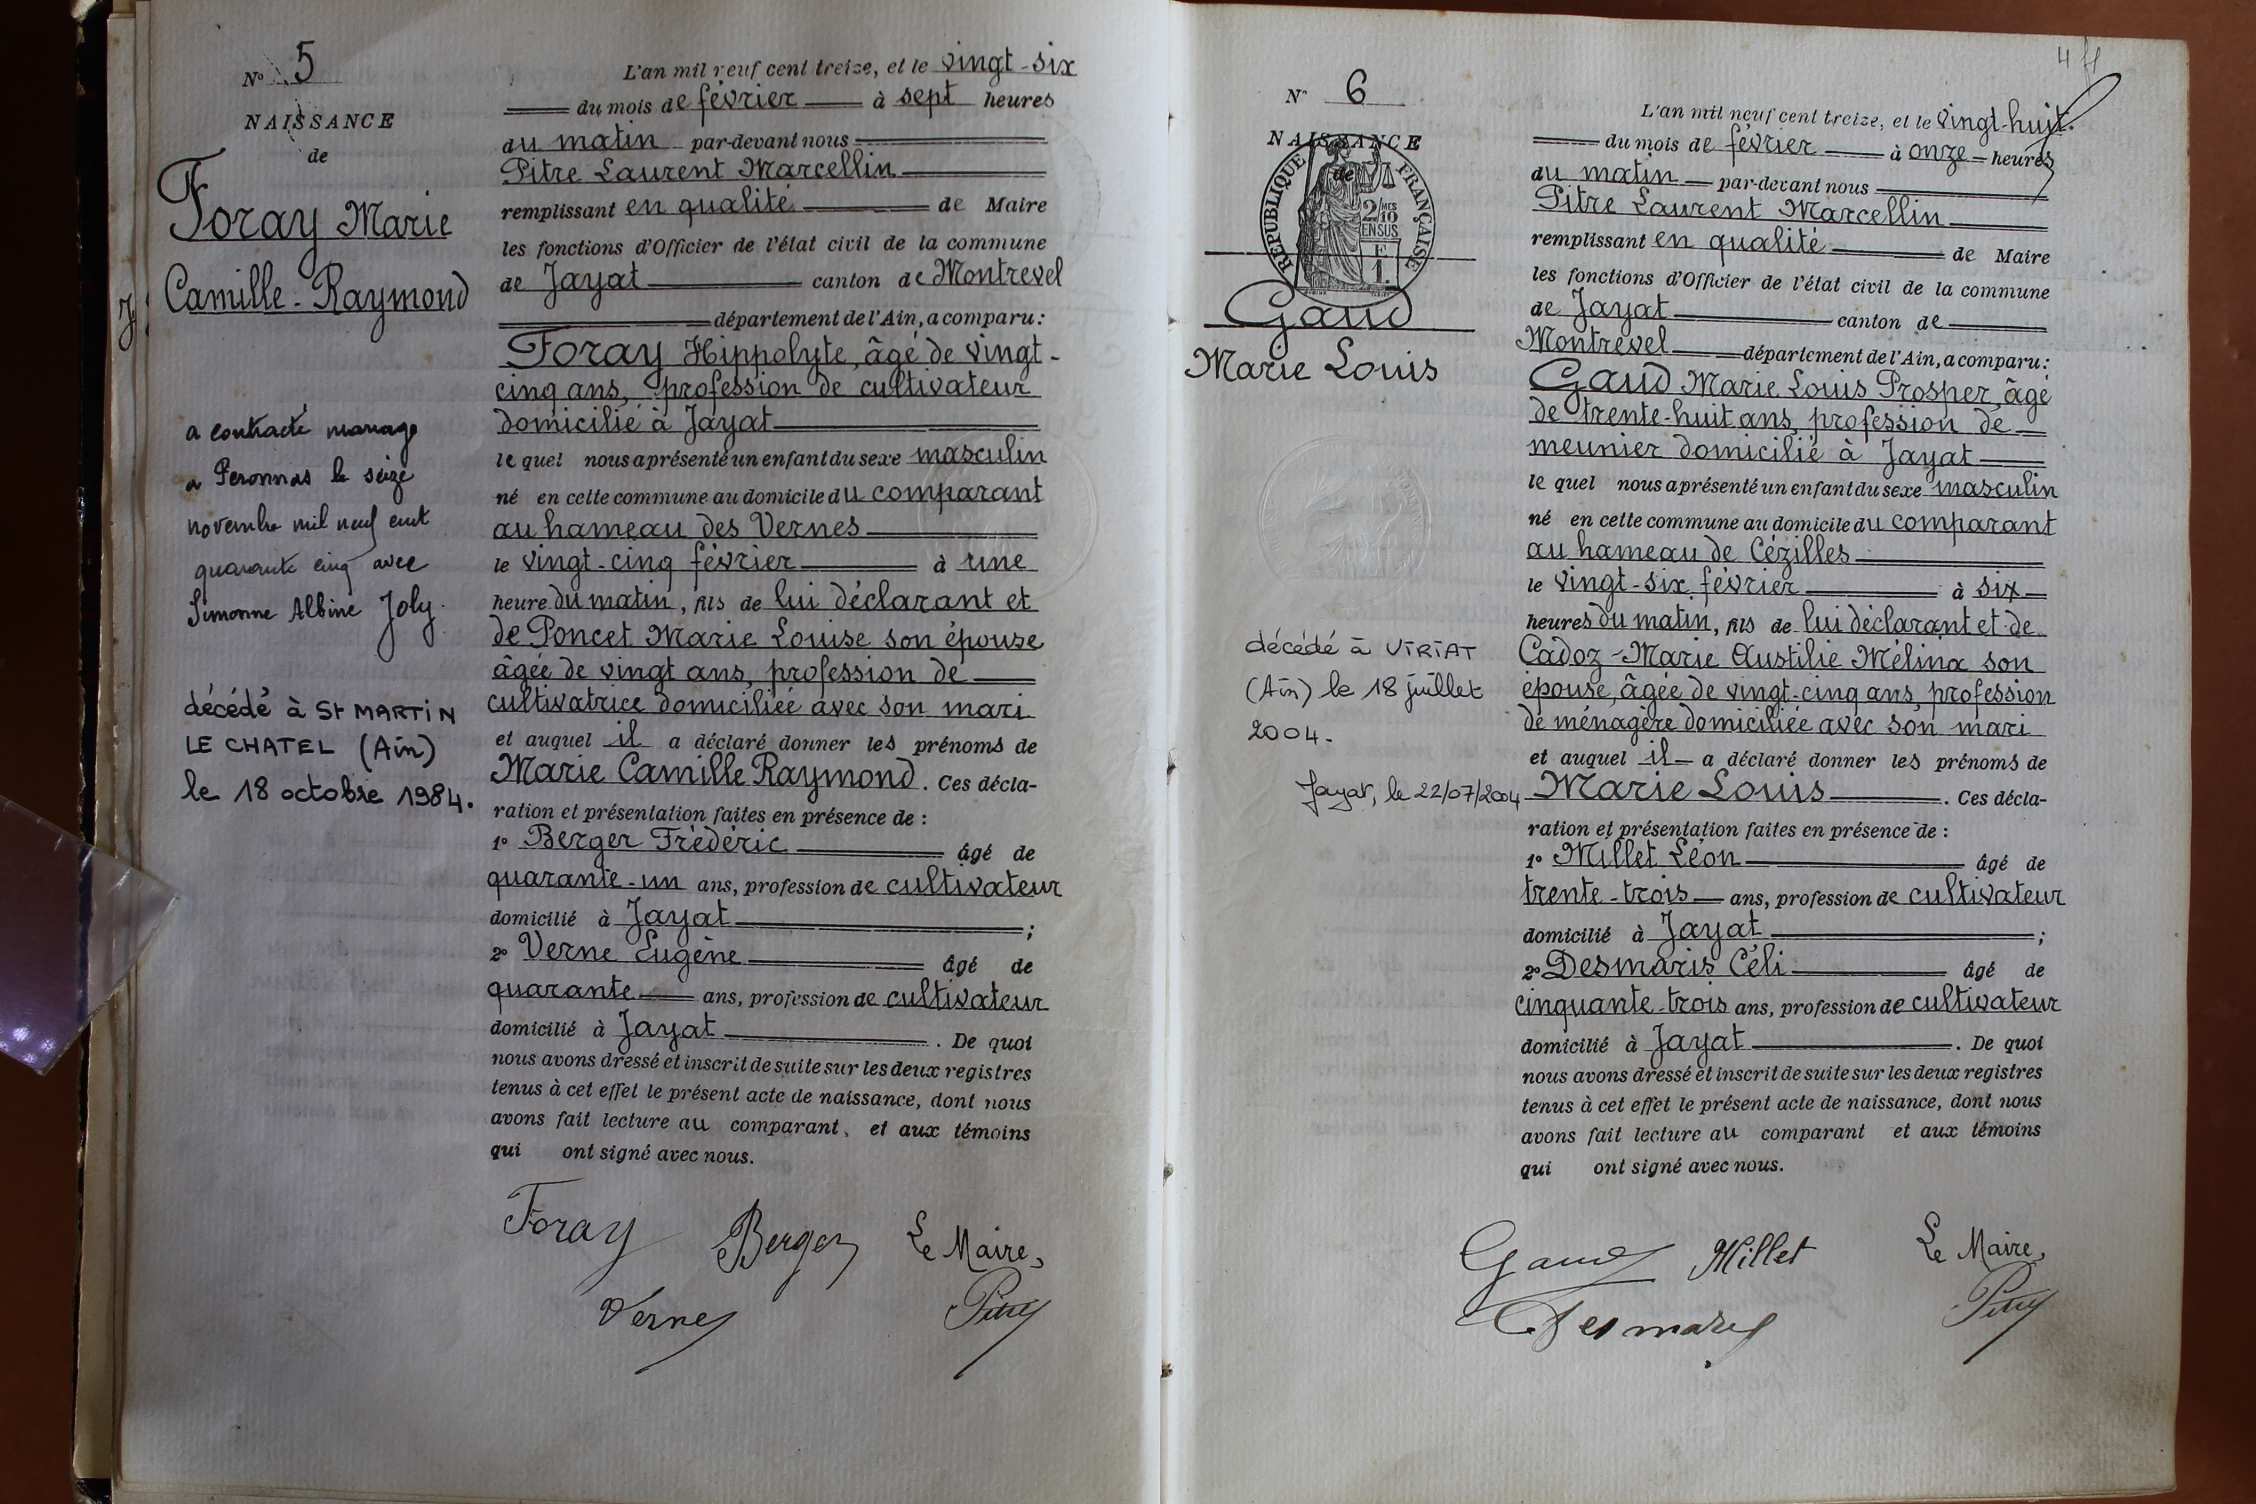 N° 5
NAISSANCE
de
Foray Marie
Camille-Raymond
a contracté mariage
à Peronnas le seize
novembre mil neuf cent
quarante cinq avec
Simonne Albine Joly.
décédé à St MARTIN
LE CHATEL (Ain)
le 18 octobre 1984.
L'an mil neuf cent treize, et le vingt-six
du mois de février à sept heures
du matin par-devant nous
Pitre Laurent Marcellin
remplissant en qualité de Maire
les fonctions d'Officier de l'état civil de la commune
de Jayat canton de Montrevel
département de l'Ain, a comparu :
Foray Hippolyte, âgé de vingt-
cinq ans, profession de cultivateur
domicilié à Jayat
le quel nous a présenté un enfant du sexe masculin
né en cette commune au domicile du comparant
au hameau des Vernes
le vingt-cinq février à une
heure du matin, fils de lui déclarant et
de Poncet Marie Louise son épouse
âgée de vingt ans, profession de
cultivatrice domiciliée avec son mari
et auquel il a déclaré donner les prénoms de
Marie Camille Raymond. Ces décla-
ration et présentation faites en présence de :
1° Berger Frédéric âgé de
quarante-un ans, profession de cultivateur
domicilié à Jayat ;
2° Verne Eugène âgé de
quarante ans, profession de cultivateur
domicilié à Jayat . De quoi
nous avons dressé et inscrit de suite sur les deux registres
tenus à cet effet le présent acte de naissance, dont nous
avons fait lecture au comparant, et aux témoins
qui ont signé avec nous.
Foray Berger Le Maire,
Verne Pitre
N° 6
NAISSANCE
de
REPUBLIQUE FRANÇAISE
2/MES
10
EN SUS
Gaud
Marie Louis
décédé à VIRIAT
(Ain) le 18 juillet
2004.
Jayat, le 22/07/2004
L'an mil neuf cent treize, et le vingt-huit
du mois de février à onze heures
du matin par-devant nous
Pitre Laurent Marcellin
remplissant en qualité de Maire
les fonctions d'Officier de l'état civil de la commune
de Jayat canton de
Montrevel département de l'Ain, a comparu :
Gaud Marie Louis Prosper, âgé
de trente-huit ans, profession de
meunier domicilié à Jayat
le quel nous a présenté un enfant du sexe masculin
né en cette commune au domicile du comparant
au hameau de Cézilles
le vingt-six février à six
heures du matin, fils de lui déclarant et de
Cadoz-Marie Austilie Mélina son
épouse, âgée de vingt-cinq ans, profession
de ménagère domiciliée avec son mari
et auquel il a déclaré donner les prénoms de
Marie Louis . Ces décla-
ration et présentation faites en présence de :
1° Millet Léon âgé de
trente-trois ans, profession de cultivateur
domicilié à Jayat ;
2° Desmaris Céli âgé de
cinquante-trois ans, profession de cultivateur
domicilié à Jayat . De quoi
nous avons dressé et inscrit de suite sur les deux registres
tenus à cet effet le présent acte de naissance, dont nous
avons fait lecture au comparant et aux témoins
qui ont signé avec nous.
Gaud Millet Le Maire,
Desmaris Pitre